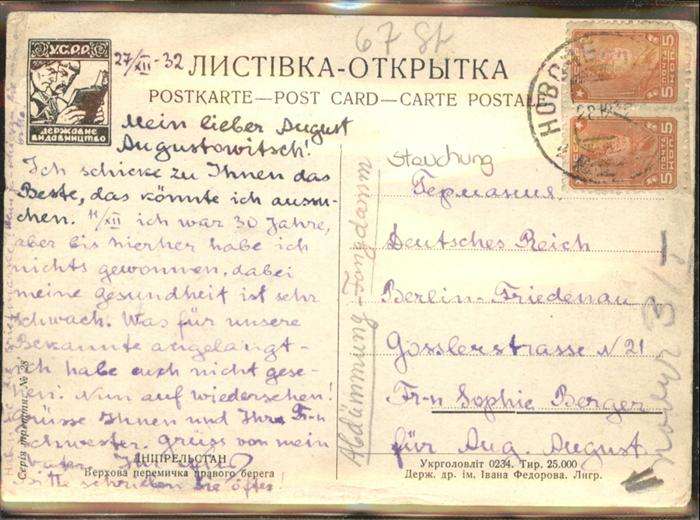 У.С.Р.Р.
ДЕРЖАВНЕ
ВИДАВНИЦТВО
27/XII-32
67 St
ЛИСТІВКА-ОТКРЫТКА
POSTKARTE—POST CARD—CARTE POSTALE
Mein lieber August
Augustowitsch!
Ich schicke zu Ihnen das
Beste, das könnte ich aussu-
chen. 11/XII ich war 30 Jahre,
aber bis hierher habe ich
nichts gewonnen, dabei
meine gesundheit ist sehr
schwach. Was für unsere
Bekannte angelangt-
ich habe euch nicht gese-
en. Nun auf wiedersehen!
Grüsse Ihnen und Ihre Fr-n
Schwester. Gruss von mein
Vater. Ihr
Bitte schreiben Sie öfter!
Серія № 28
ДНІПРЕЛЬСТАН
Верхова перемичка правого берега
Abdämmung
Stauchung
НОВО
5
5
Германия.
Deutsches Reich
Berlin-Friedenau
Gosslerstrasse N 21
Fr-n Sophie Berger
für Aug. August.
Укрголовліт 0234. Тир. 25.000
Держ. др. ім. Івана Федорова. Лнгр.